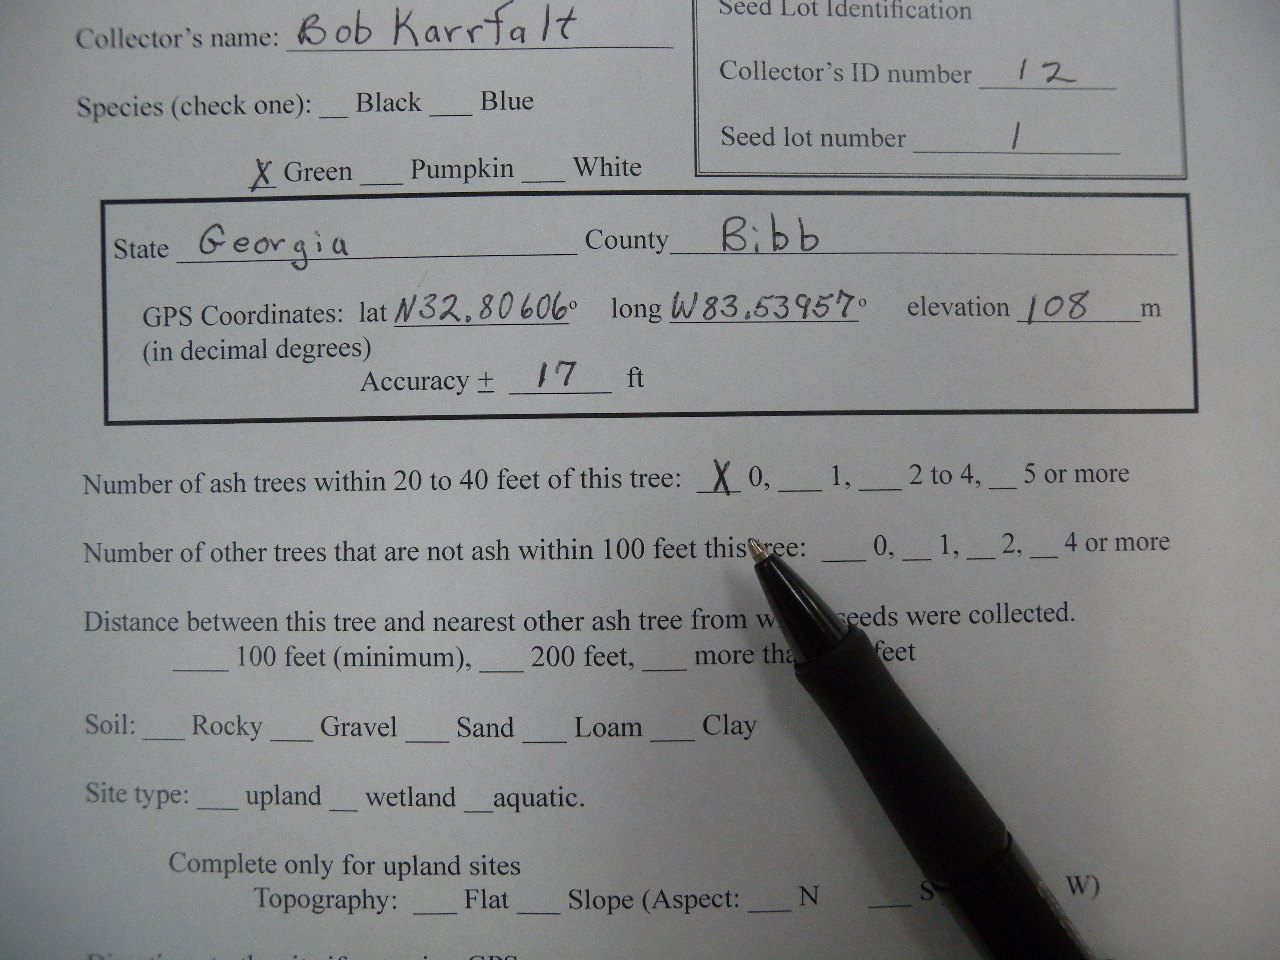 Seed Lot Identification
Collector's name: Bob Karrfalt
Collector's ID number 12
Species (check one): __ Black ___ Blue
Seed lot number 1
X Green ___ Pumpkin ___ White
State Georgia County Bibb
GPS Coordinates: lat N32.80606° long W83.53957° elevation 108 m
(in decimal degrees)
Accuracy ± 17 ft
Number of ash trees within 20 to 40 feet of this tree: X 0, ___ 1, ___ 2 to 4, __ 5 or more
Number of other trees that are not ash within 100 feet this tree: ___ 0, __ 1, __ 2, __ 4 or more
Distance between this tree and nearest other ash tree from seeds were collected.
____ 100 feet (minimum), ___ 200 feet, ___ more feet
Soil: ___ Rocky ___ Gravel ___ Sand ___ Loam ___ Clay
Site type: ___ upland __ wetland __aquatic.
Complete only for upland sites
Topography: ___ Flat ___ Slope (Aspect: ___ N ___ S W)